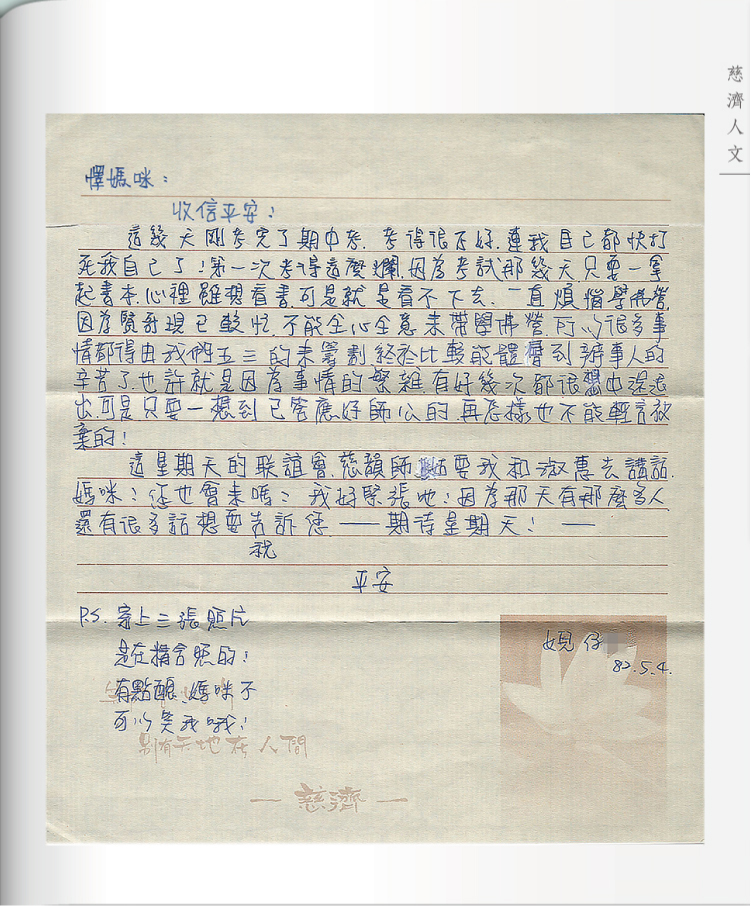 慈濟人文
懌媽咪：
收信平安！
這幾天剛考完了期中考，考得很不好，連我自己都快打
死我自己了！第一次考得這麼爛，因為考試那幾天，只要一拿
起書本，心裡雖想看書，可是就是看不下去，一直煩惱學佛營，
因為賢 現已較忙，不能全心全意來帶學佛營，所以很多事
情都得由我們五三的來籌劃，終於比較能體會到辦事人的
辛苦了，也許就是因為事情的繁雜，有好幾次都很想中途退
出，可是只要一想到已答應好師公的，再怎樣也不能輕言放
棄的！
這星期天的联誼會，慈韻師姑要我和淑惠去講話，
媽咪！您也會來嗎？我好緊張吔！因為那天有那麼多人，
還有很多話想要告訴您——期待星期天！—
祝
平安
P.S. 寄上三張照片
是在精舍照的！
有點醜、媽咪不
可以笑我哦！
女兒 仔
82.5.4.
別有天地在人間
— 慈濟 —